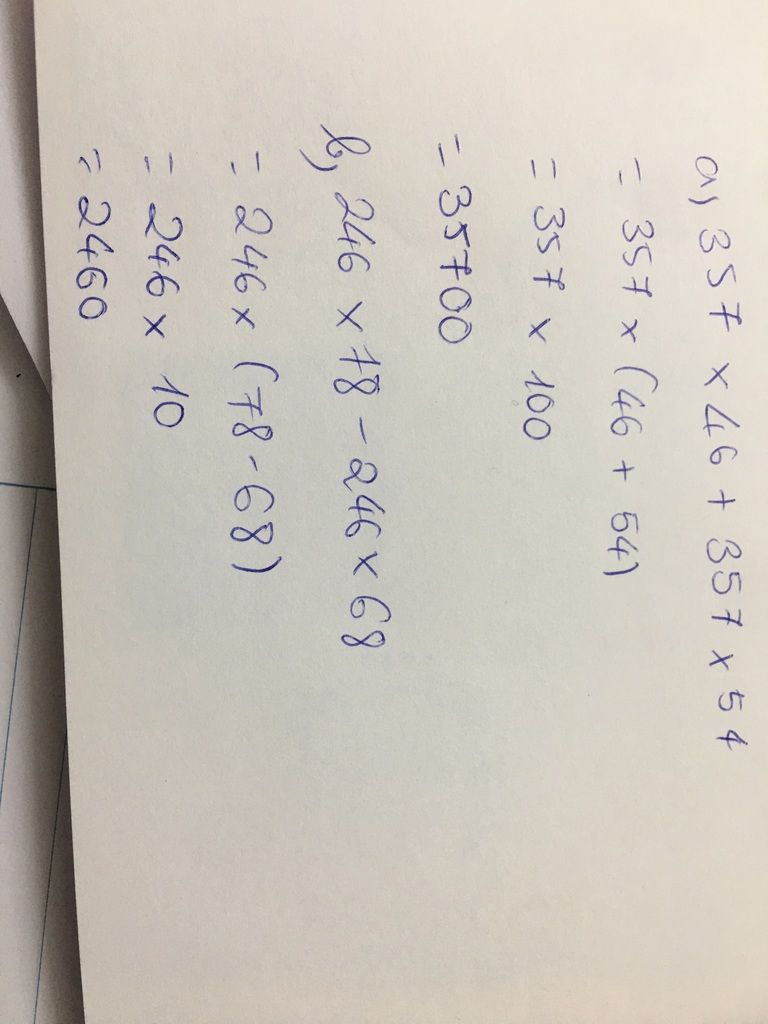 a, 357 x 46 + 357 x 54
= 357 x (46 + 54)
= 357 x 100
= 35700
b, 246 x 78 - 246 x 68
= 246 x (78 - 68)
= 246 x 10
= 2460